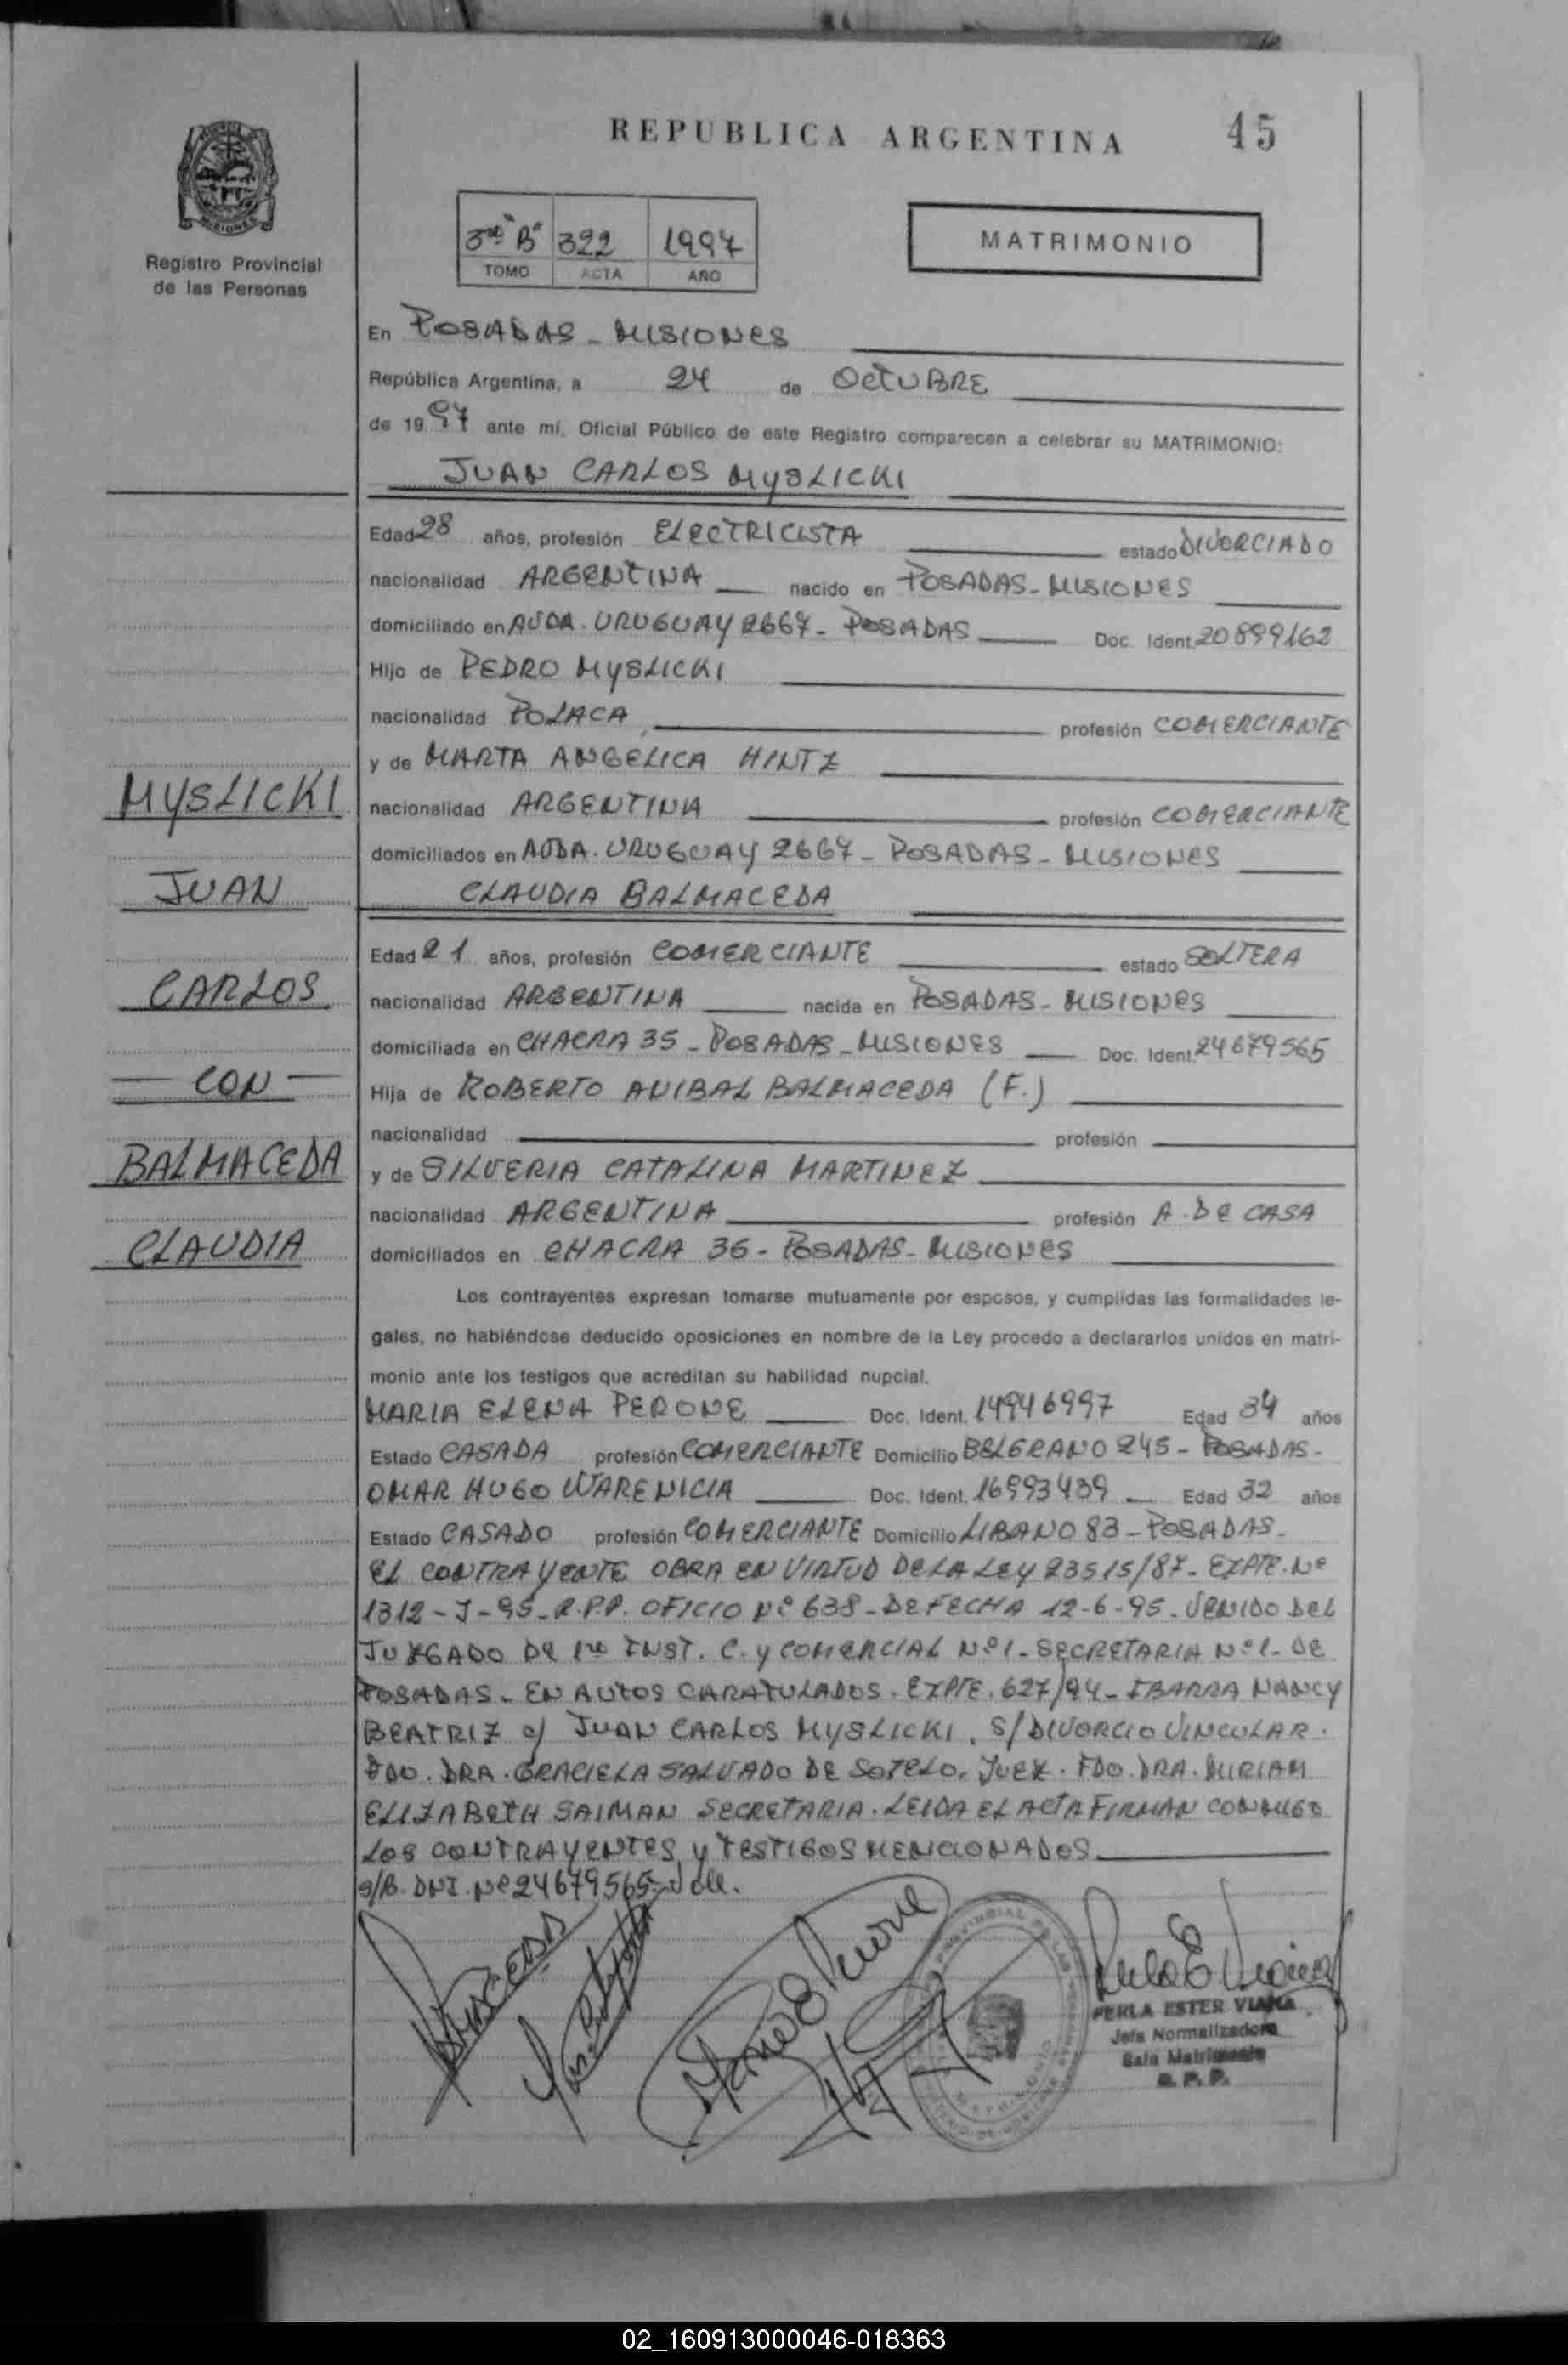 REPUBLICA ARGENTINA
45
MISIONES
Registro Provincial
de las Personas
3ro "B" 322 1997
TOMO ACTA AÑO
MATRIMONIO
En POSADAS - MISIONES
República Argentina, a 24 de OCTUBRE
de 1997 ante mí, Oficial Público de este Registro comparecen a celebrar su MATRIMONIO:
JUAN CARLOS MYSLICKI
Edad 28 años, profesión ELECTRICISTA estado DIVORCIADO
nacionalidad ARGENTINA nacido en POSADAS - MISIONES
domiciliado en AVDA. URUGUAY 2667 - POSADAS Doc. Ident. 20899162
Hijo de PEDRO MYSLICKI
nacionalidad POLACA profesión COMERCIANTE
y de MARTA ANGELICA HINTZ
nacionalidad ARGENTINA profesión COMERCIANTE
domiciliados en AVDA. URUGUAY 2667 - POSADAS - MISIONES
CLAUDIA BALMACEDA
Edad 21 años, profesión COMERCIANTE estado SOLTERA
nacionalidad ARGENTINA nacida en POSADAS - MISIONES
domiciliada en CHACRA 35 - POSADAS - MISIONES Doc. Ident. 24679565
Hija de ROBERTO ANIBAL BALMACEDA (F.)
nacionalidad profesión
y de SILVERIA CATALINA MARTINEZ
nacionalidad ARGENTINA profesión A. DE CASA
domiciliados en CHACRA 36 - POSADAS - MISIONES
MYSLICKI
JUAN
CARLOS
— CON —
BALMACEDA
CLAUDIA
Los contrayentes expresan tomarse mutuamente por esposos, y cumplidas las formalidades le-
gales, no habiéndose deducido oposiciones en nombre de la Ley procedo a declararlos unidos en matri-
monio ante los testigos que acreditan su habilidad nupcial.
MARIA ELENA PERONE Doc. Ident. 14946997 Edad 34 años
Estado CASADA profesión COMERCIANTE Domicilio BELGRANO 245 - POSADAS -
OMAR HUGO WARENICIA Doc. Ident. 16993439 Edad 32 años
Estado CASADO profesión COMERCIANTE Domicilio LIBANO 83 - POSADAS -
EL CONTRAYENTE OBRA EN VIRTUD DE LA LEY 23515/87 - EXPTE. Nº
1312 - J - 95 - R.P.P. OFICIO Nº 638 - DE FECHA 12-6-95 - VENIDO DEL
JUZGADO DE 1ra INST. C. y COMERCIAL Nº 1 - SECRETARIA Nº 1 - DE
POSADAS - EN AUTOS CARATULADOS. EXPTE. 627/94 - IBARRA NANCY
BEATRIZ c/ JUAN CARLOS MYSLICKI. S/ DIVORCIO VINCULAR.
FDO. DRA. GRACIELA SALVADO DE SOTELO. JUEZ. FDO. DRA. MIRIAM
ELIZABETH SAIMAN SECRETARIA. LEIDA EL ACTA FIRMAN CONMIGO
LOS CONTRAYENTES y TESTIGOS MENCIONADOS
S/B. DNI. Nº 24679565 - Vale.
PERLA ESTER VIANA
Jefa Normalizadora
Sala Matrimonio
R. P. P.
02_160913000046-018363